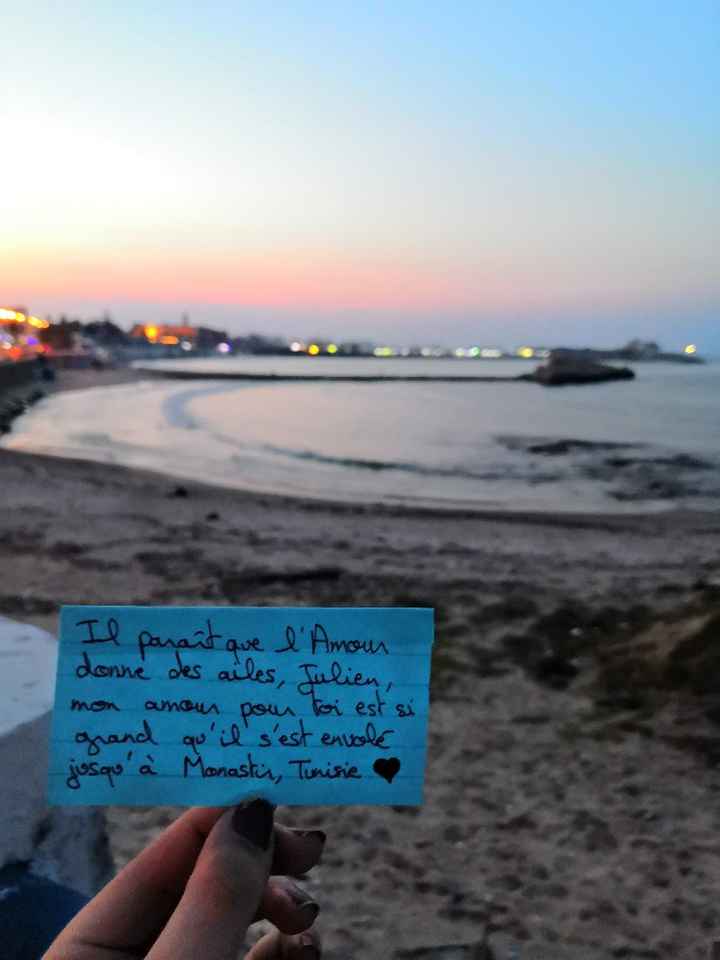 Il paraît que l'Amour
donne des ailes, Julien,
mon amour pour toi est si
grand qu'il s'est envolé
jusqu'à Monastir, Tunisie ♥